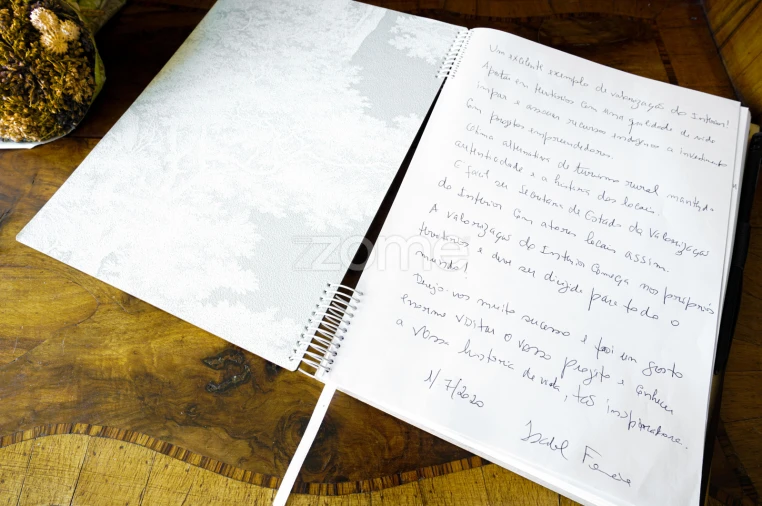 Um excelente exemplo de valorização do Interior!
Apostar em territórios com uma qualidade de vida
ímpar e associar recursos endógenos a investimento
com projetos empreendedores.
Como alternativa de turismo rural mantendo
autenticidade e a história dos locais.
É fácil ser Secretária de Estado da Valorização
do Interior com atores locais assim.
A valorização do Interior começa nos próprios
territórios e deve ser dirigida para todo o
mundo!
Desejo-vos muito sucesso e foi um gosto
enorme visitar o vosso projeto e conhecer
a vossa história de vida, tão inspiradora.
1/7/2020
Isabel Ferreira
zome